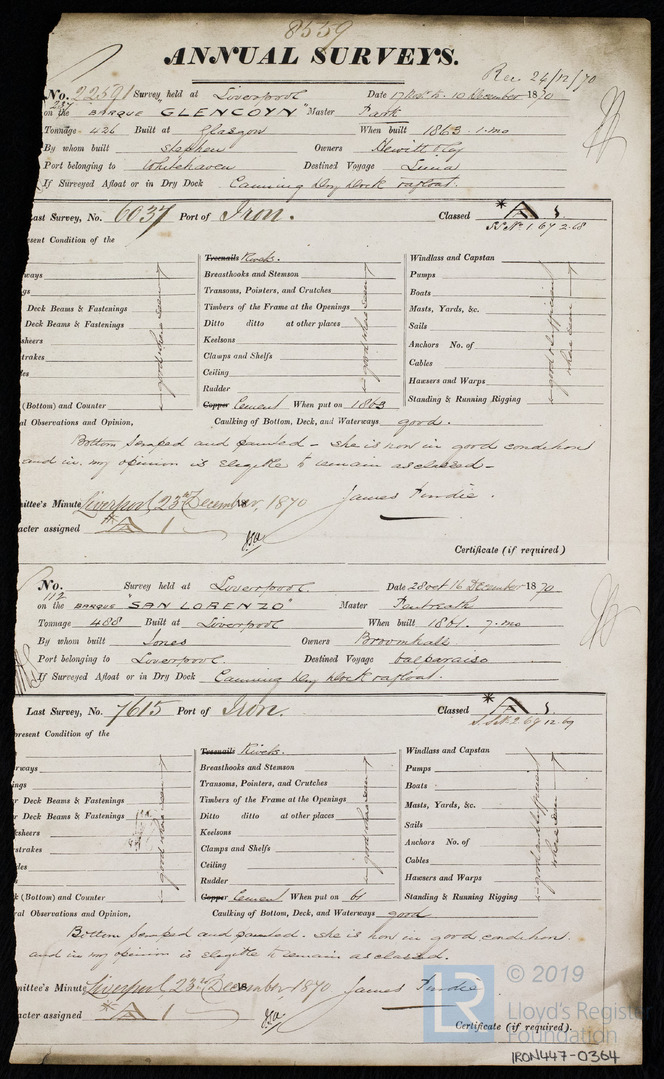 8559
ANNUAL SURVEYS.
Rec 24/12/70
No. 22591 Survey held at Liverpool Date 17 Nov to 10 December 1870
on the BARQUE "GLENCOYN" Master Park
Tonnage 426 Built at Glasgow When built 1863. 1. mo
By whom built Stephen Owners Hewitt &
Port belonging to Whitehaven Destined Voyage Lima
If Surveyed Afloat or in Dry Dock Canning Dry Dock & afloat.
Last Survey, No. 6037 Port of Iron. Classed * A 1
SS No 1 67 2.68
esent Condition of the
Treenails Rivets. Windlass and Capstan
ways Breasthooks and Stemson Pumps
gs Transoms, Pointers, and Crutches Boats
Deck Beams & Fastenings Timbers of the Frame at the Openings Masts, Yards, &c.
Deck Beams & Fastenings Ditto ditto at other places Sails
sheers Keelsons Anchors No. of
trakes Clamps and Shelfs Cables
es Ceiling Hawsers and Warps
Rudder Standing & Running Rigging
(Bottom) and Counter Copper Cement When put on 1863
good where seen
good where seen
good & sufficient where seen
al Observations and Opinion, Caulking of Bottom, Deck, and Waterways good.
Bottom scraped and painted - she is now in good condition
and in my opinion is elegible to remain as classed -
ittee's Minute Liverpool, 23rd December, 1870 James Purdie.
acter assigned * A 1
Certificate (if required)
No. 112 Survey held at Liverpool Date 28 Oct 16 December 1870
on the BARQUE "SAN LORENZO" Master Pentreath
Tonnage 488 Built at Liverpool When built 1861. 7. mo
By whom built Jones Owners Broomhall
Port belonging to Liverpool Destined Voyage Valparaiso
If Surveyed Afloat or in Dry Dock Canning Dry Dock & afloat.
Last Survey, No. 7615 Port of Iron. Classed * A 1
S.S No 2 69 12.69
present Condition of the
Treenails Rivets. Windlass and Capstan
rways Breasthooks and Stemson Pumps
ings Transoms, Pointers, and Crutches Boats
r Deck Beams & Fastenings Timbers of the Frame at the Openings Masts, Yards, &c.
r Deck Beams & Fastenings Ditto ditto at other places Sails
ksheers Keelsons Anchors No. of
strakes Clamps and Shelfs Cables
des Ceiling Hawsers and Warps
Rudder Standing & Running Rigging
k (Bottom) and Counter Copper Cement When put on 61
good where seen
good where seen
good and sufficient where seen
ral Observations and Opinion, Caulking of Bottom, Deck, and Waterways good
Bottom scraped and painted. She is now in good condition.
and in my opinion is elegible to remain as classed.
ittee's Minute Liverpool, 23rd December, 1870 James Purdie
acter assigned * A 1
Certificate (if required).
LR © 2019
Lloyd's Register
Foundation
IRON447-0364